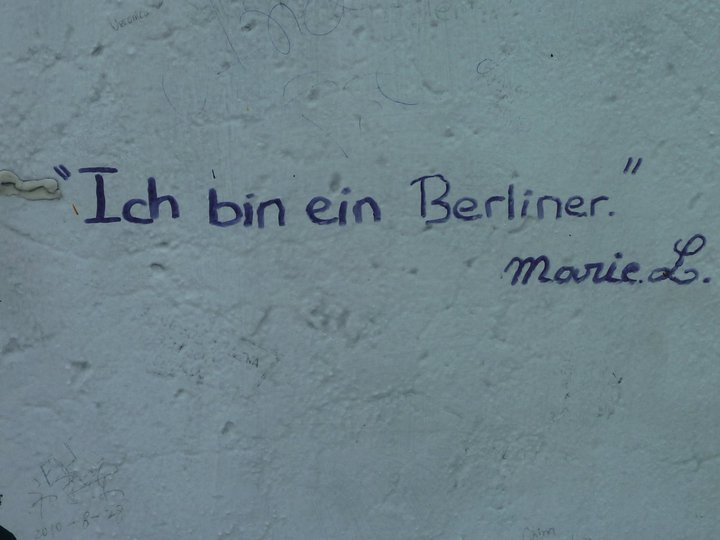 "Ich bin ein Berliner."
Marie.L.
2010-8-23